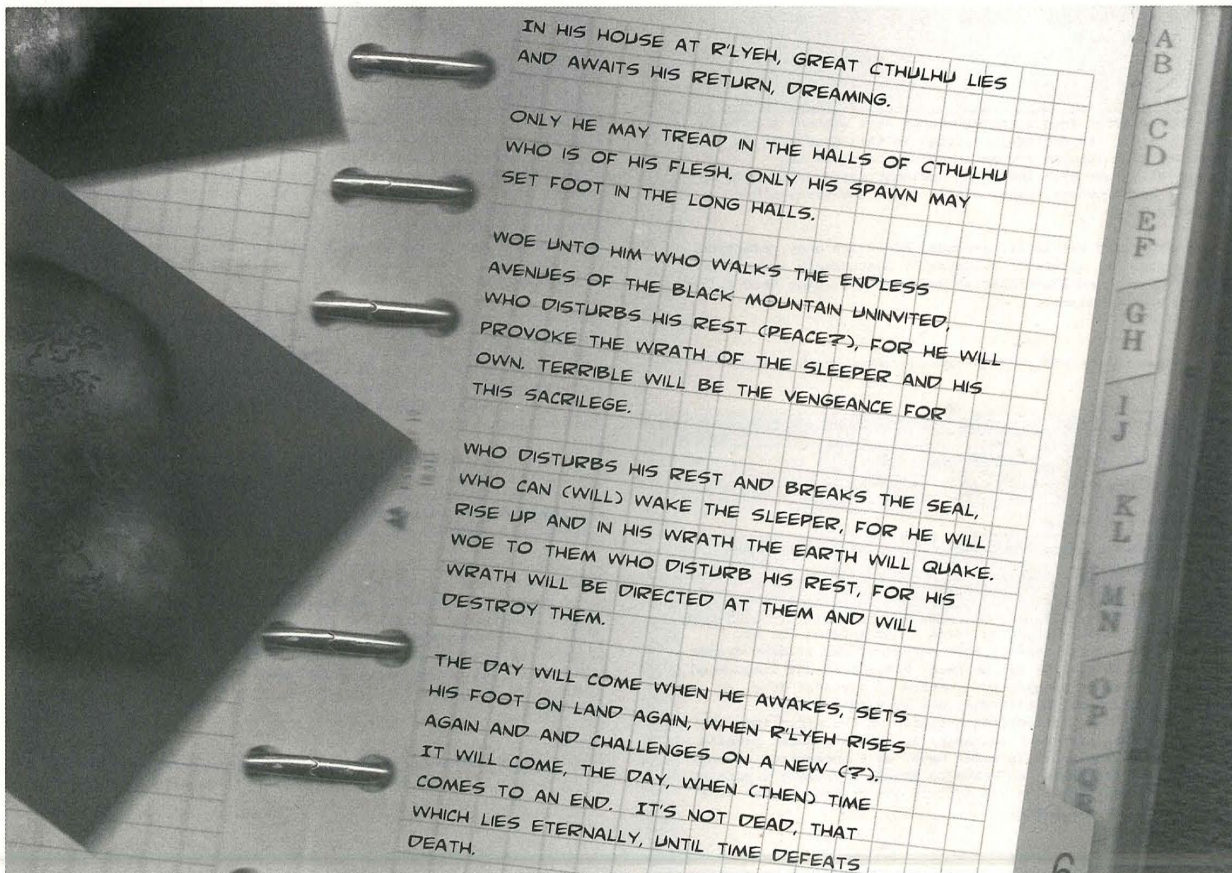 IN HIS HOUSE AT R'LYEH, GREAT CTHULHU LIES
AND AWAITS HIS RETURN, DREAMING.
ONLY HE MAY TREAD IN THE HALLS OF CTHULHU
WHO IS OF HIS FLESH. ONLY HIS SPAWN MAY
SET FOOT IN THE LONG HALLS.
WOE UNTO HIM WHO WALKS THE ENDLESS
AVENUES OF THE BLACK MOUNTAIN UNINVITED,
WHO DISTURBS HIS REST (PEACE?), FOR HE WILL
PROVOKE THE WRATH OF THE SLEEPER AND HIS
OWN. TERRIBLE WILL BE THE VENGEANCE FOR
THIS SACRILEGE.
WHO DISTURBS HIS REST AND BREAKS THE SEAL,
WHO CAN (WILL) WAKE THE SLEEPER, FOR HE WILL
RISE UP AND IN HIS WRATH THE EARTH WILL QUAKE.
WOE TO THEM WHO DISTURB HIS REST, FOR HIS
WRATH WILL BE DIRECTED AT THEM AND WILL
DESTROY THEM.
THE DAY WILL COME WHEN HE AWAKES, SETS
HIS FOOT ON LAND AGAIN, WHEN R'LYEH RISES
AGAIN AND AND CHALLENGES ON A NEW (?).
IT WILL COME, THE DAY, WHEN (THEN) TIME
COMES TO AN END. IT'S NOT DEAD, THAT
WHICH LIES ETERNALLY, UNTIL TIME DEFEATS
DEATH.
A
B
C
D
E
F
G
H
I
J
K
L
M
N
O
P
Q
R
6